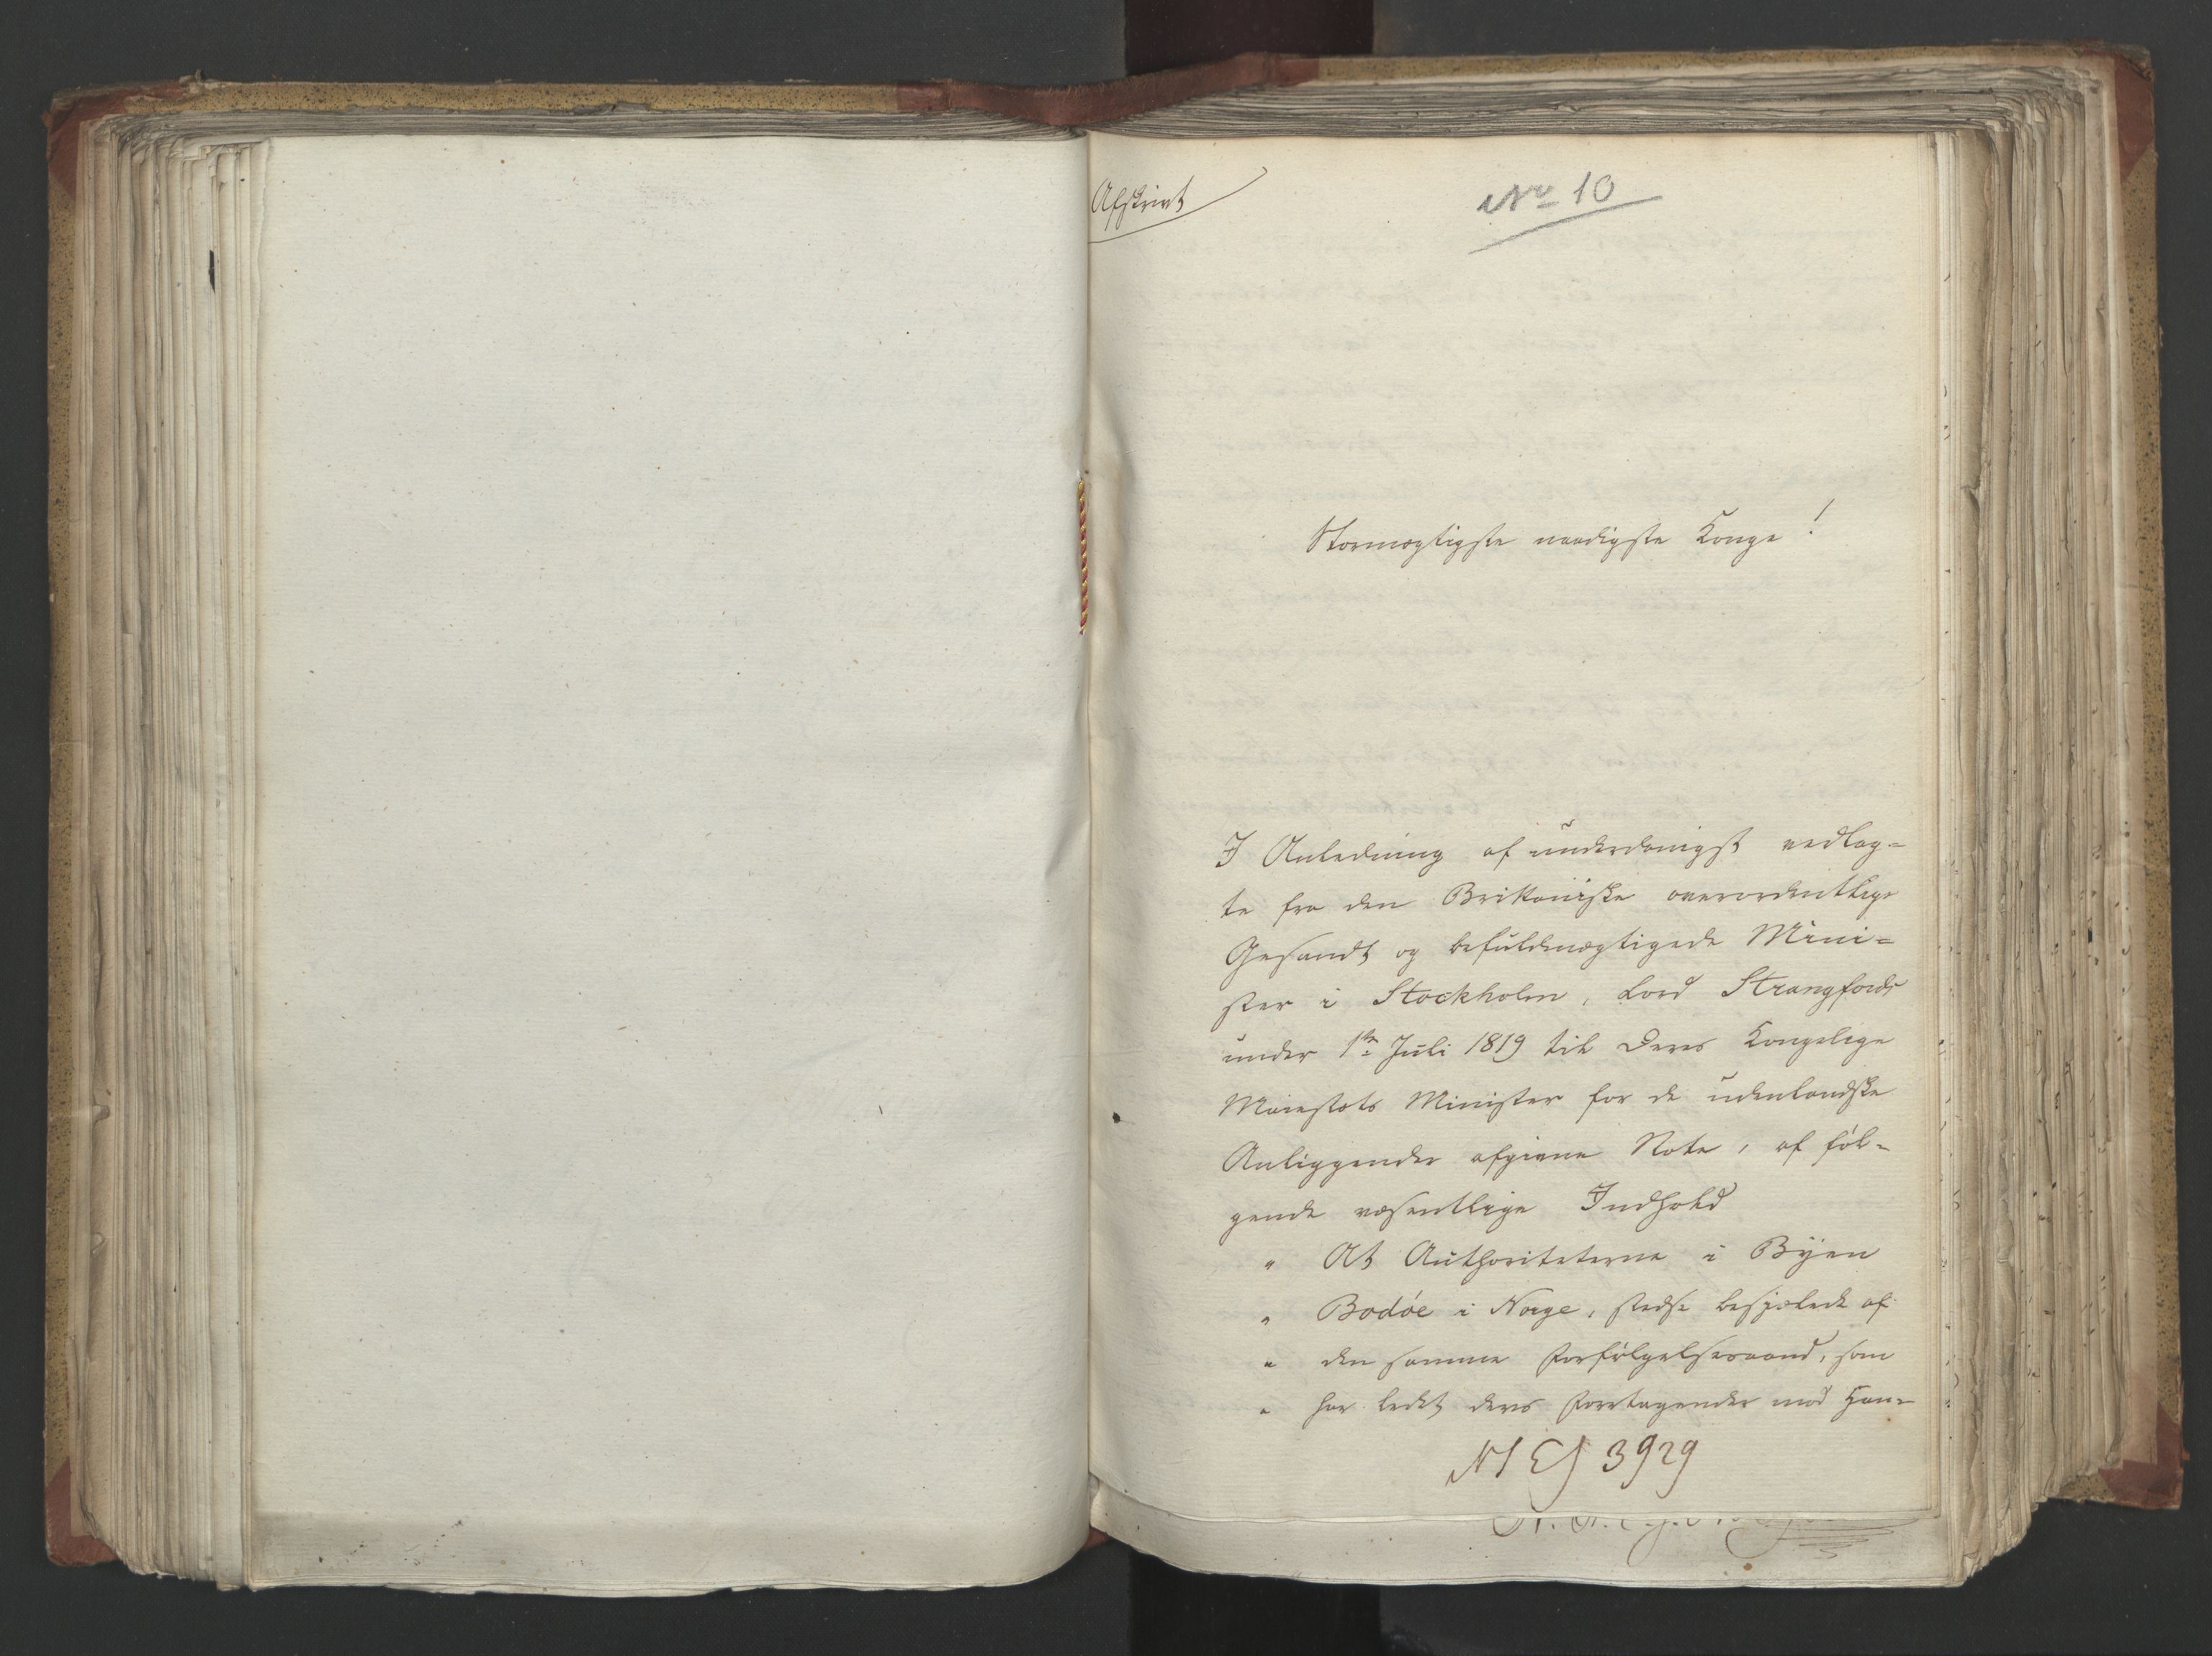 Afskrivt
No 10
Stormægtigste naadigste Konge!
I Anledning af underdanigst vedlag=
te fra den Brittaniske overordentlige
Gesandt og befuldmægtigede Mini=
ster i Stockholm, Lord Strangfords
under 1ste Juli 1819 til Deres Kongelige
Maiestæts Minister for de udenlandske
Anliggender afgivne Note, af føl=
gende væsentlige Indhold
" At Authoriteterne i Byen
" Bodøe i Norge, stedse besjælede af
" den samme Forfølgelsesaand, som
" har ledet deres Foretagender mod Han=
3929